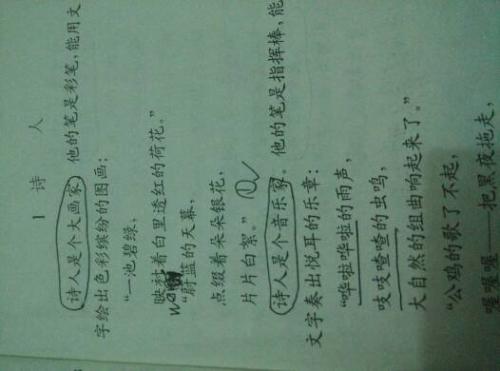 1 诗 人
诗人是个大画家。他的笔是彩笔，能用文
字绘出色彩缤纷的图画：
“一池碧绿，
映衬着白里透红的荷花。”
“蔚蓝的天幕，
点缀着朵朵银花，
片片白絮。”
诗人是个音乐家。他的笔是指挥棒，能
文字奏出悦耳的乐章：
“哗啦哗啦的雨声，
吱吱喳喳的虫鸣，
大自然的组曲响起来了。”
“公鸡的歌了不起，
喔喔喔——把黑夜拖走，